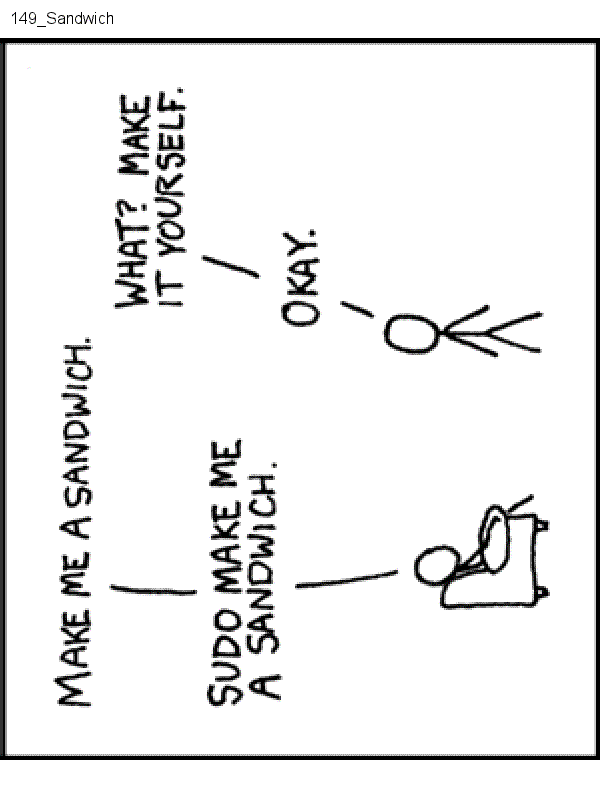 149_Sandwich
MAKE ME A SANDWICH.
WHAT? MAKE
IT YOURSELF.
SUDO MAKE ME
A SANDWICH.
OKAY.